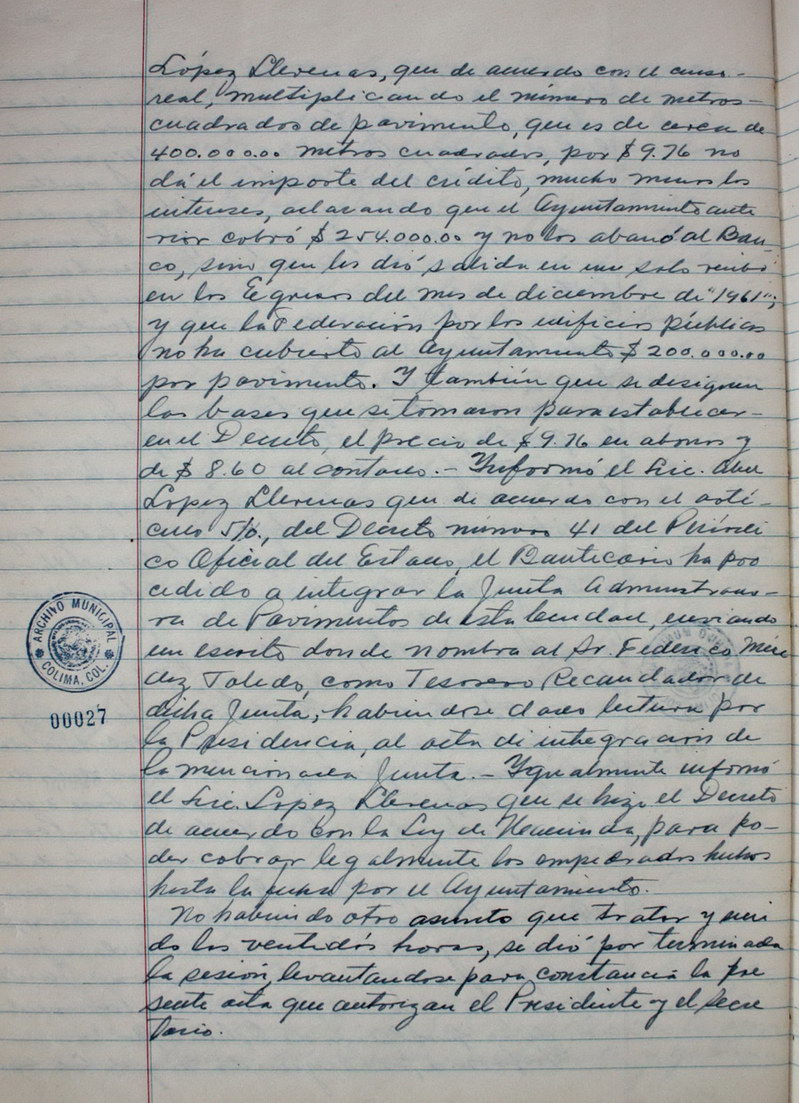 López Llerenas, que de acuerdo con el censo-
real, multiplicando el número de metros-
cuadrados de pavimento, que es de cerca de
400.000.00 metros cuadrados, por $ 9.76 no
dá el importe del crédito, mucho menos los
intereses, aclarando que el Ayuntamiento ante
rior cobró $ 254.000.00 y no los abonó al Ban-
co, sino que les dió salida en un solo recibo
en los Egresos del mes de diciembre de "1961";
y que la Federación por los edificios públicos
no ha cubierto al Ayuntamiento $ 200.000.00
por pavimento. Y también que se designen
las bases que se tomaron para establecer-
en el Decreto, el precio de $ 9.76 en abonos y
de $ 8.60 al contado.- Informó el Lic. Abel
López Llerenas que de acuerdo con el artí-
culo 5/o., del Decreto número 41 del Periódi
co Oficial del Estado, el Banco ha pro
cedido a integrar la Junta Administrado-
ra de Pavimentos de esta ciudad, enviando
un escrito donde nombra al Sr. Federico Mén
dez Toledo, como Tesorero Recaudador de
dicha Junta, habiendose dado lectura por
la Presidencia, al acta de integración de
la mencionada Junta.- Igualmente informó
el Lic. López Llerenas que se hizo el Decreto
de acuerdo con la Ley de Hacienda, para po-
der cobrar legalmente los empedrados hechos
hasta la fecha por el Ayuntamiento.
No habiendo otro asunto que tratar y sien
do las ventidós horas, se dió por terminada
la sesión, levantandose para constancia la pre
sente acta que autorizan el Presidente y el Secre
tario.
ARCHIVO MUNICIPAL
COLIMA, COL.
00027